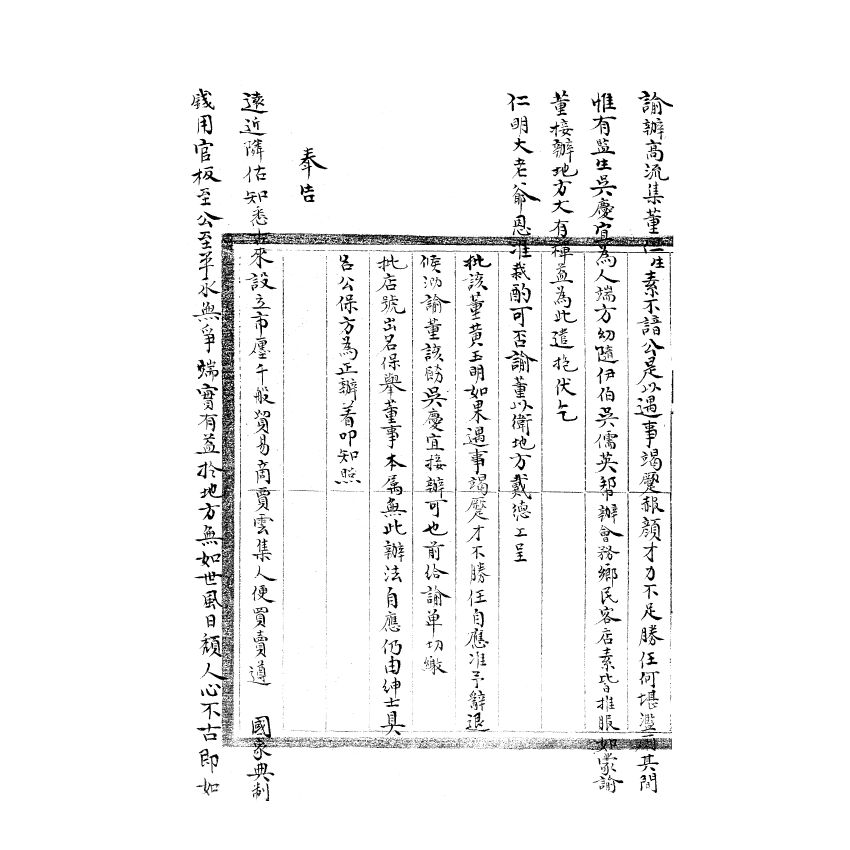 諭辦高流集董仁生素不諳公是以遇事竭蹷赧顏才力不足勝任何堪濫厠其間
惟有監生吳慶宜為人端方幼隨伊伯吳儒英幫辦會務鄉民客店素皆推服如蒙諭
董接辦地方大有裨益為此遣抱伏乞
仁明大老爺恩准裁酌可否諭董以衛地方戴德上呈
批該董黃玉明如果遇事竭蹷才不勝任自應准予辭退
候諭董該勝吳慶宜接辦可也前給諭單切繳
批店號出名保舉董事本屬無此辦法自應仍由紳士具
呈公保方為正辦着叩知照
奉告
遠近隣佑知悉古來設立市廛千般貿易商賈雲集人便買賣遵 國家典制
錢用官板至公至平永無爭端實有益於地方無如世風日頹人心不古即如